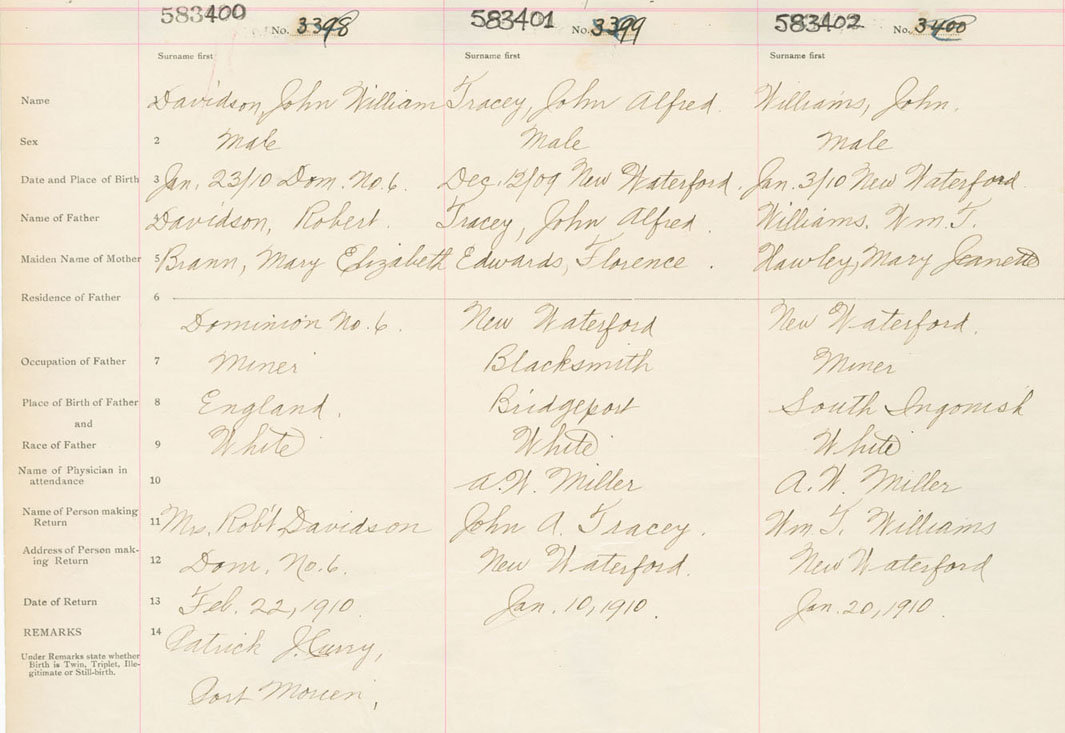 583400 583401 583402
No. 3398 No. 3399 No. 3400
Surname first Surname first Surname first
Name 1 Davidson, John William Tracey, John Alfred. Williams, John.
Sex 2 Male Male Male
Date and Place of Birth 3 Jan. 23/10 Dom. No. 6. Dec. 12/09 New Waterford. Jan. 3/10 New Waterford
Name of Father 4 Davidson, Robert. Tracey, John Alfred. Williams, Wm. T.
Maiden Name of Mother 5 Brann, Mary Elizabeth Edwards, Florence. Hawley, Mary Jeanette
Residence of Father 6
Dominion No. 6. New Waterford New Waterford.
Occupation of Father 7 Miner Blacksmith Miner
Place of Birth of Father 8 England. Bridgeport South Ingonish
and
Race of Father 9 White White White
Name of Physician in
attendance 10 A. W. Miller A. W. Miller
Name of Person making
Return 11 Mrs. Rob't Davidson John A. Tracey. Wm. T. Williams
Address of Person mak-
ing Return 12 Dom. No. 6. New Waterford. New Waterford
Date of Return 13 Feb. 22, 1910. Jan. 10, 1910. Jan. 20, 1910.
REMARKS 14 Patrick J. Curry,
Under Remarks state whether
Birth is Twin, Triplet, Ille-
gitimate or Still-birth.
Port Morien,